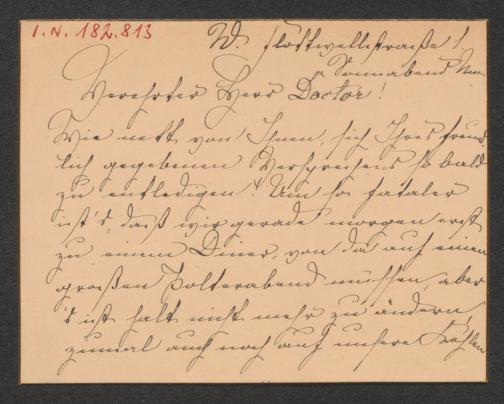 I.N. 182.813
W. Flottwellstraße 1.
Sonnabend
Verehrter Herr Doctor!
Wie nett von Ihnen, sich Ihres freund-
lich gegebenen Versprechens so bald
zu entledigen! Um so fataler
ist's, daß wir gerade morgen erst
zu einem Diner, von da auf einen
großen Polterabend müssen, aber
's ist halt nicht mehr zu ändern,
zumal auch noch auf unsere